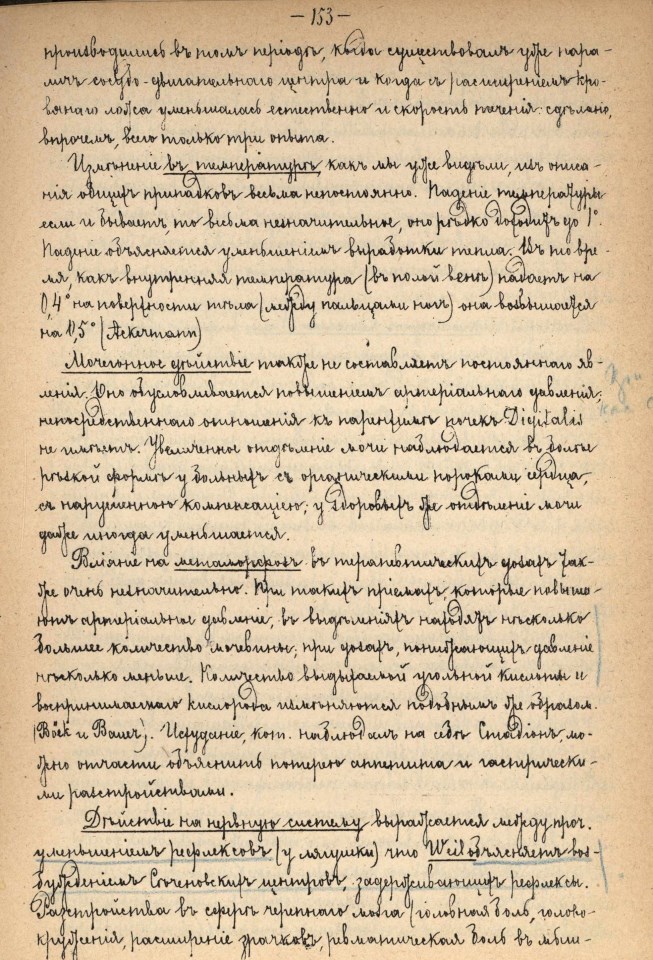 — 153 —
производились въ томъ періодѣ, когда существовалъ уже пара-
личъ сосудо-двигательнаго центра и когда съ расширеніемъ кро-
вянаго ложа уменьшалась естественно и скорость теченія: сдѣлано,
впрочемъ, всего только три опыта.
Измѣненіе въ температурѣ, какъ мы уже видѣли, изъ описа-
нія общихъ припадковъ весьма непостоянно. Паденіе температуры
если и бываетъ, то весьма незначительное, оно рѣдко доходитъ до 1°.
Паденіе объясняется уменьшеніемъ выработки тепла. Въ то вре-
мя, какъ внутренняя температура (въ полой венѣ) падаетъ на
0,4° на поверхности тѣла (между пальцами ногъ) она возвышается
на 0,5° (Ackermann)
Мочегонное дѣйствіе также не составляетъ постояннаго яв-
ленія. Оно обусловливается повышеніемъ артеріальнаго давленія;
непосредственнаго отношенія къ паренхимѣ почекъ Digitalis
не имѣетъ. Увеличенное отдѣленіе мочи наблюдается въ болѣе
рѣзкой формѣ у больныхъ съ органическими пороками сердца,
съ нарушенною компенсаціею; у здоровыхъ же отдѣленіе мочи
даже иногда уменьшается.
Вліяніе на метаморфозъ въ терапевтическихъ дозахъ так-
же очень незначительно. При такихъ пріемахъ, которые повыша-
ютъ артеріальное давленіе, въ выдѣленіяхъ находятъ нѣсколько
большее количество мочевины; при дозахъ, понижающихъ давленіе
нѣсколько меньше. Количество выдыхаемой угольной кислоты и
воспринимаемаго кислорода измѣняются подобнымъ же образомъ.
(Böck и Bauer). Исхуданіе, кот. наблюдалъ на себѣ Стадіонъ, мо-
жно отчасти объяснить потерею аппетита и гастрически-
ми разстройствами.
Дѣйствіе на нервную систему выражается между проч.
уменьшеніемъ рефлексовъ (у лягушки) что Weil объясняетъ воз-
бужденіемъ Сѣченовскихъ центровъ, задерживающихъ рефлексы.
Разстройства въ сферѣ черепнаго мозга (головная боль, голово-
круженія, расширеніе зрачковъ, ревматическая боль въ мыш-